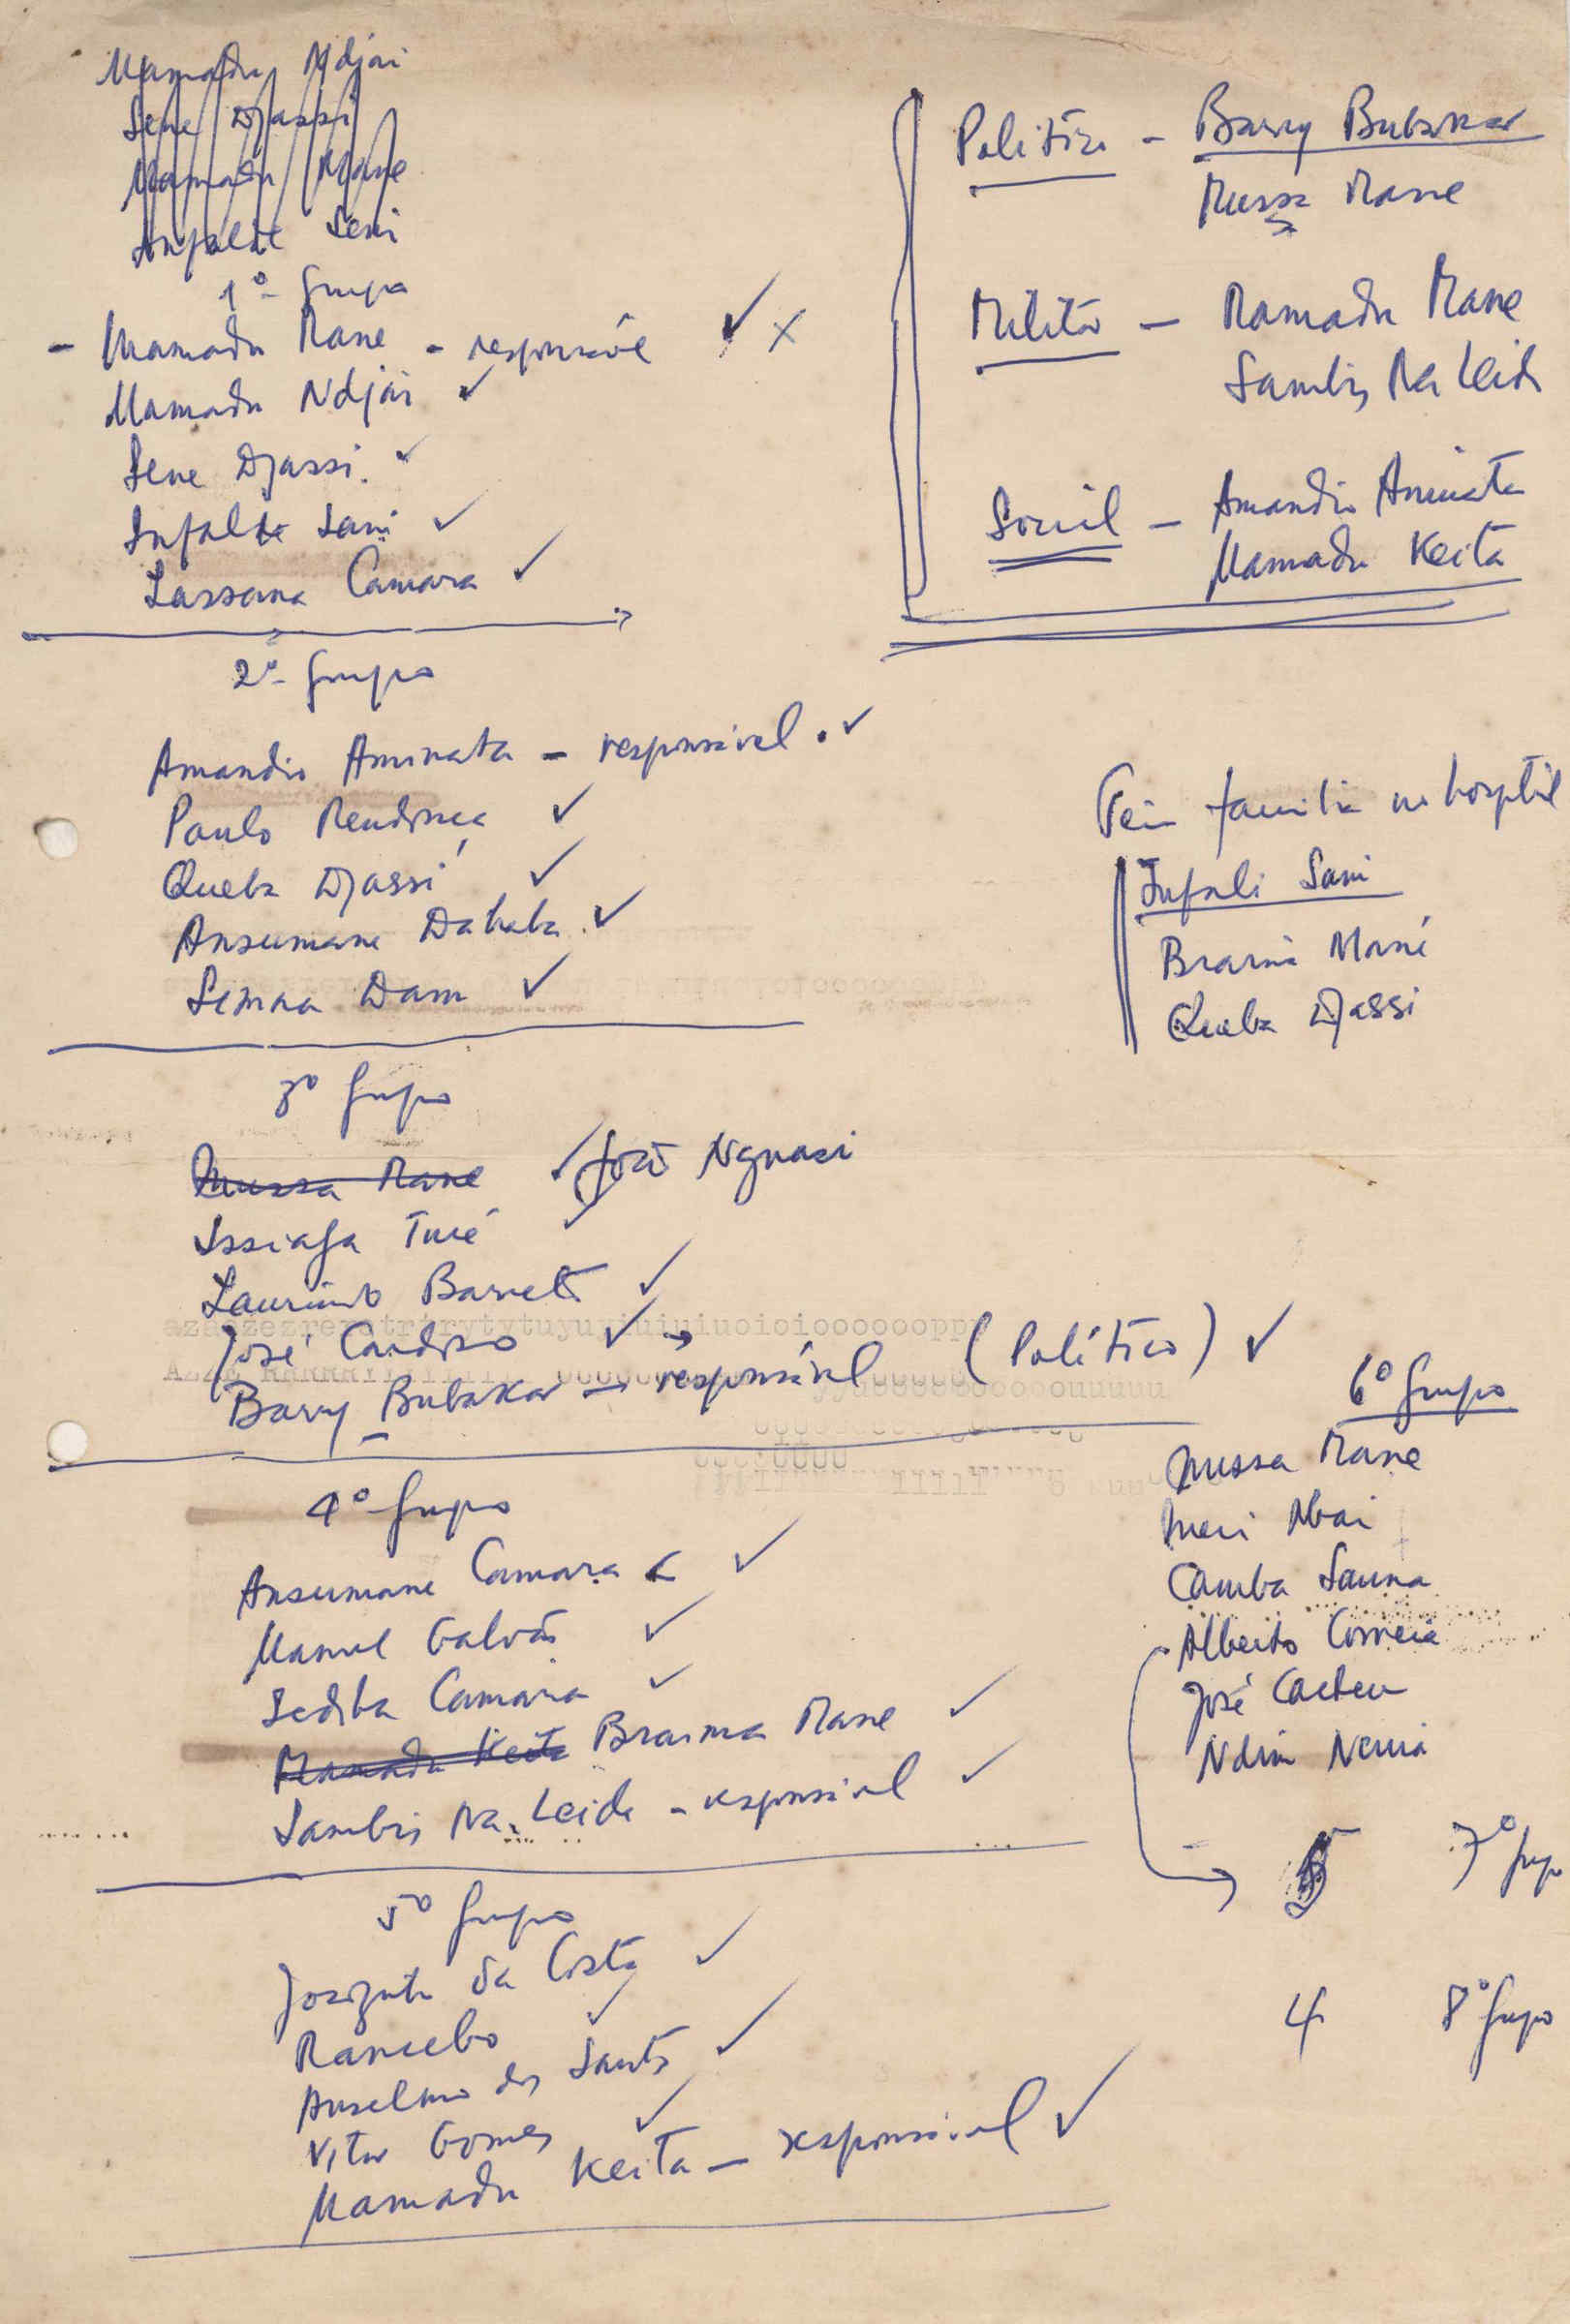 Mamadu Ndjai
Sene Djassi
Mamadu Mane
Infalde Seni
1º Grupo
- Mamadu Mane - responsável ✓ x
Mamadu Ndjai ✓
Sene Djassi ✓
Infalde Sani ✓
Lassana Camara ✓
2º Grupo
Amandio Aminata - responsável ✓
Paulo Mendonça ✓
Queba Djassi ✓
Ansumane Dahaba ✓
Semaa Dam ✓
3º Grupo
Mussa Mane ✓ João Nguasi
Issiaga Turé ✓
Laurindo Barreto ✓
José Cardoso ✓
Barry Bubakar → responsável (Político) ✓
4º Grupo
Ansumane Camara ✓
Manuel Galvão ✓
Sediba Camara ✓
Mamadu Keita Braima Mane ✓
Sambis Na Leide - responsável ✓
5º Grupo
da Costa ✓
Mancebo ✓
Anselmo dos Santos ✓
Vitor Gomes ✓
Mamadu Keita - responsável ✓
Político - Barry Bubakar
Mussa Mane
Milita - Mamadu Mane
Sambis Na Leide
Social - Amandio Aminata
Mamadu Keita
Tem familia no hospital
Infali Sani
Braima Mané
Queba Djassi
6º Grupo
Mussa Mane
Meri Nbai
Camba Sauna
Alberto Correia
José Cacheu
Ndim Nema
5 7º Grupo
4 8º Grupo